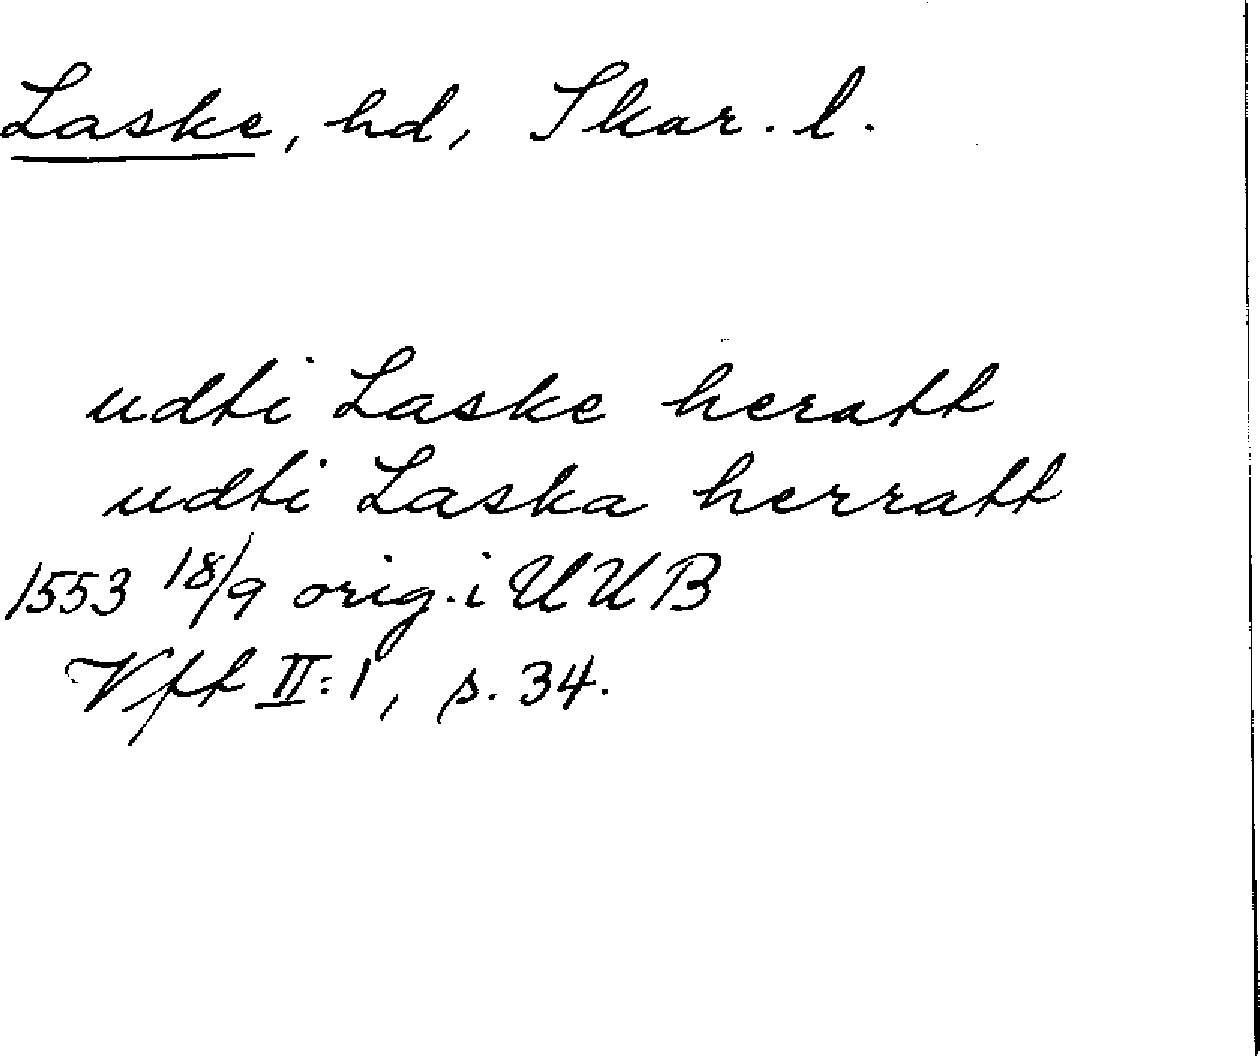 Laske, hd, Skar. l.
udti Laske heratt
udti Laska herratt
1553 18/9 orig. i UUB
Vftt II:1, s. 34.